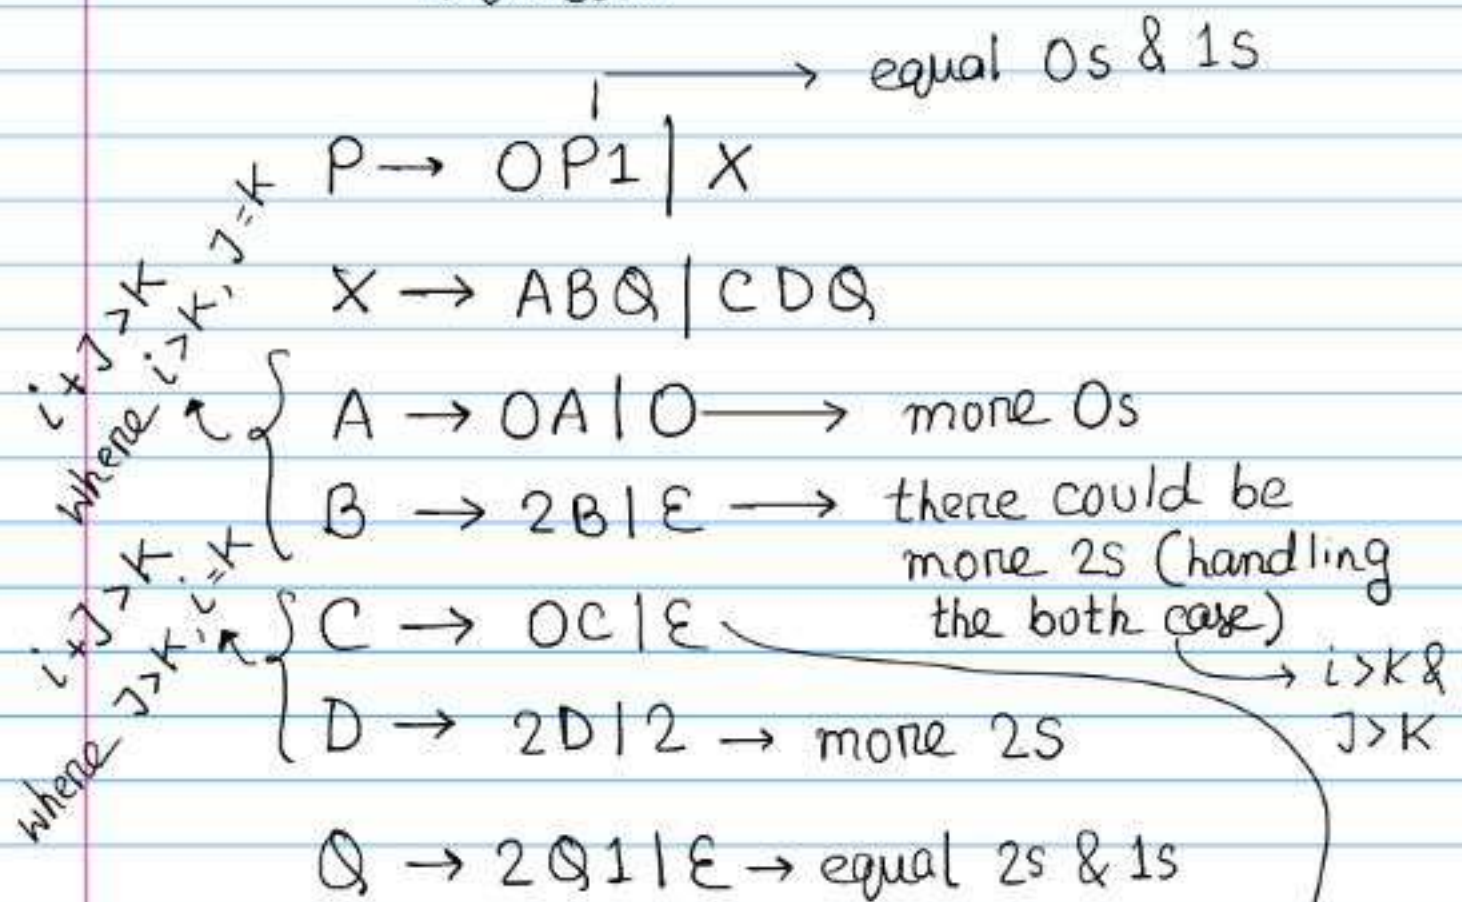 equal 0s & 1s
P → 0P1 | X
X → ABQ | CDQ
i+J>K
where i>K, J=K
A → 0A | 0 → more 0s
B → 2B | ε → there could be
more 2s (handling
the both case)
→ i>K &
J>K
i+J>K
where J>K, i=K
C → 0C | ε
D → 2D | 2 → more 2s
Q → 2Q1 | ε → equal 2s & 1s